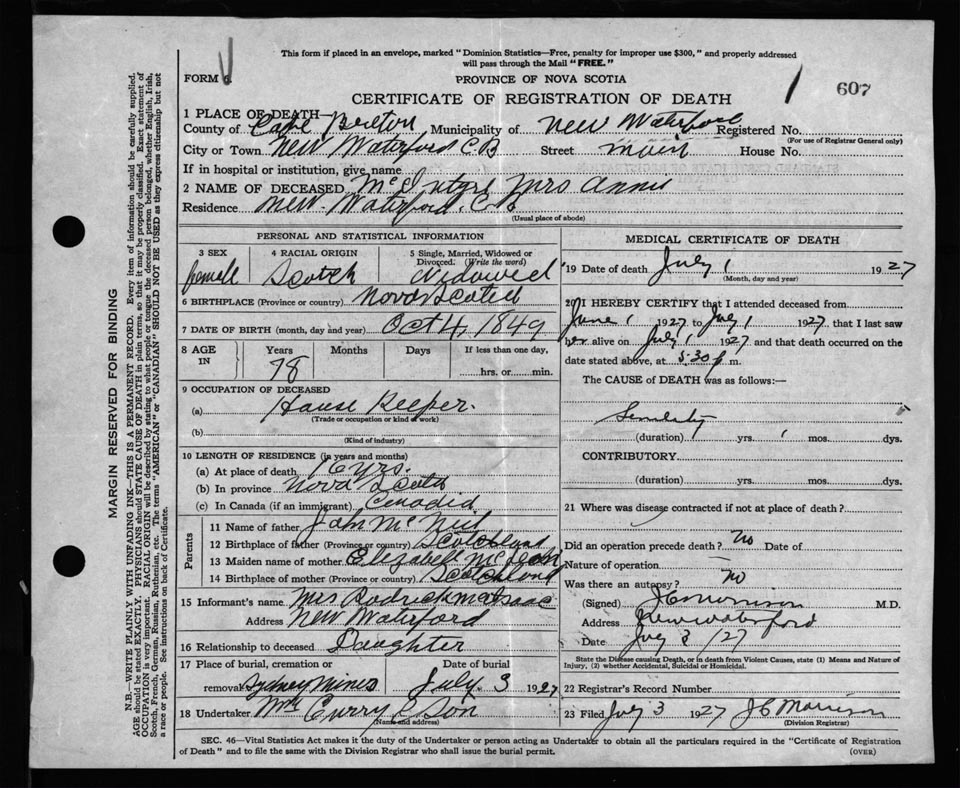 This form if placed in an envelope, marked "Dominion Statistics—Free, penalty for improper use $300," and properly addressed
will pass through the Mail "FREE."
FORM 6
PROVINCE OF NOVA SCOTIA
1 607
CERTIFICATE OF REGISTRATION OF DEATH
1 PLACE OF DEATH
County of Cape Breton Municipality of New Waterford Registered No.
(For use of Registrar General only)
City or Town New Waterford C.B Street main House No.
If in hospital or institution, give name
2 NAME OF DECEASED McIntyre Mrs Annie
Residence New Waterford. C.B
(Usual place of abode)
PERSONAL AND STATISTICAL INFORMATION
3 SEX 4 RACIAL ORIGIN 5 Single, Married, Widowed or Divorced. (Write the word)
female Scotch Widowed
6 BIRTHPLACE (Province or country) Nova Scotia
7 DATE OF BIRTH (month, day and year) Oct 4, 1849
8 AGE IN Years Months Days If less than one day,
78 hrs. or min.
9 OCCUPATION OF DECEASED
(a) House Keeper.
(Trade or occupation or kind of work)
(b)
(Kind of industry)
10 LENGTH OF RESIDENCE (in years and months)
(a) At place of death 16 yrs.
(b) In province Nova Scotia
(c) In Canada (if an immigrant) Canada
Parents
11 Name of father John McNeil
12 Birthplace of father (Province or country) Scotchland
13 Maiden name of mother Elizabeth McLean
14 Birthplace of mother (Province or country) Scotchland
15 Informant's name Mrs Rodrick McIsaac
Address New Waterford
16 Relationship to deceased Daughter
17 Place of burial, cremation or Date of burial
removal Sydney Mines July 3 1927
18 Undertaker Wm Curry & Son
(Name and address)
MEDICAL CERTIFICATE OF DEATH
19 Date of death July 1 1927
(Month, day and year)
20 I HEREBY CERTIFY that I attended deceased from
June 1 1927 to July 1 1927, that I last saw
her alive on July 1 1927 and that death occurred on the
date stated above, at 5.30 p m.
The CAUSE of DEATH was as follows:
Senility
(duration) yrs. 1 mos. dys.
CONTRIBUTORY
(duration) yrs. mos. dys.
21 Where was disease contracted if not at place of death?
Did an operation precede death? No Date of
Nature of operation
Was there an autopsy? No
(Signed) J C Morrison M.D.
Address New Waterford
Date July 3 /27
State the Disease causing Death, or in death from Violent Causes, state (1) Means and Nature of
Injury, (2) whether Accidental, Suicidal or Homicidal.
22 Registrar's Record Number
23 Filed July 3 1927 J C Morrison
(Division Registrar)
SEC. 46—Vital Statistics Act makes it the duty of the Undertaker or person acting as Undertaker to obtain all the particulars required in the "Certificate of Registration
of Death" and to file the same with the Division Registrar who shall issue the burial permit.
(OVER)
MARGIN RESERVED FOR BINDING
N.B.—WRITE PLAINLY WITH UNFADING INK—THIS IS A PERMANENT RECORD. Every item of information should be carefully supplied.
AGE should be stated EXACTLY. PHYSICIANS should STATE CAUSE OF DEATH in plain terms, so that it may be properly classified. Exact statement of
OCCUPATION is very important. RACIAL ORIGIN will be described by stating to what people or tongue the deceased person belonged, whether English, Irish,
Scotch, French, German, Russian, Ruthenian, etc. The terms "AMERICAN" or "CANADIAN" SHOULD NOT BE USED as they express citizenship but not
a race or people. See instructions on back of Certificate.